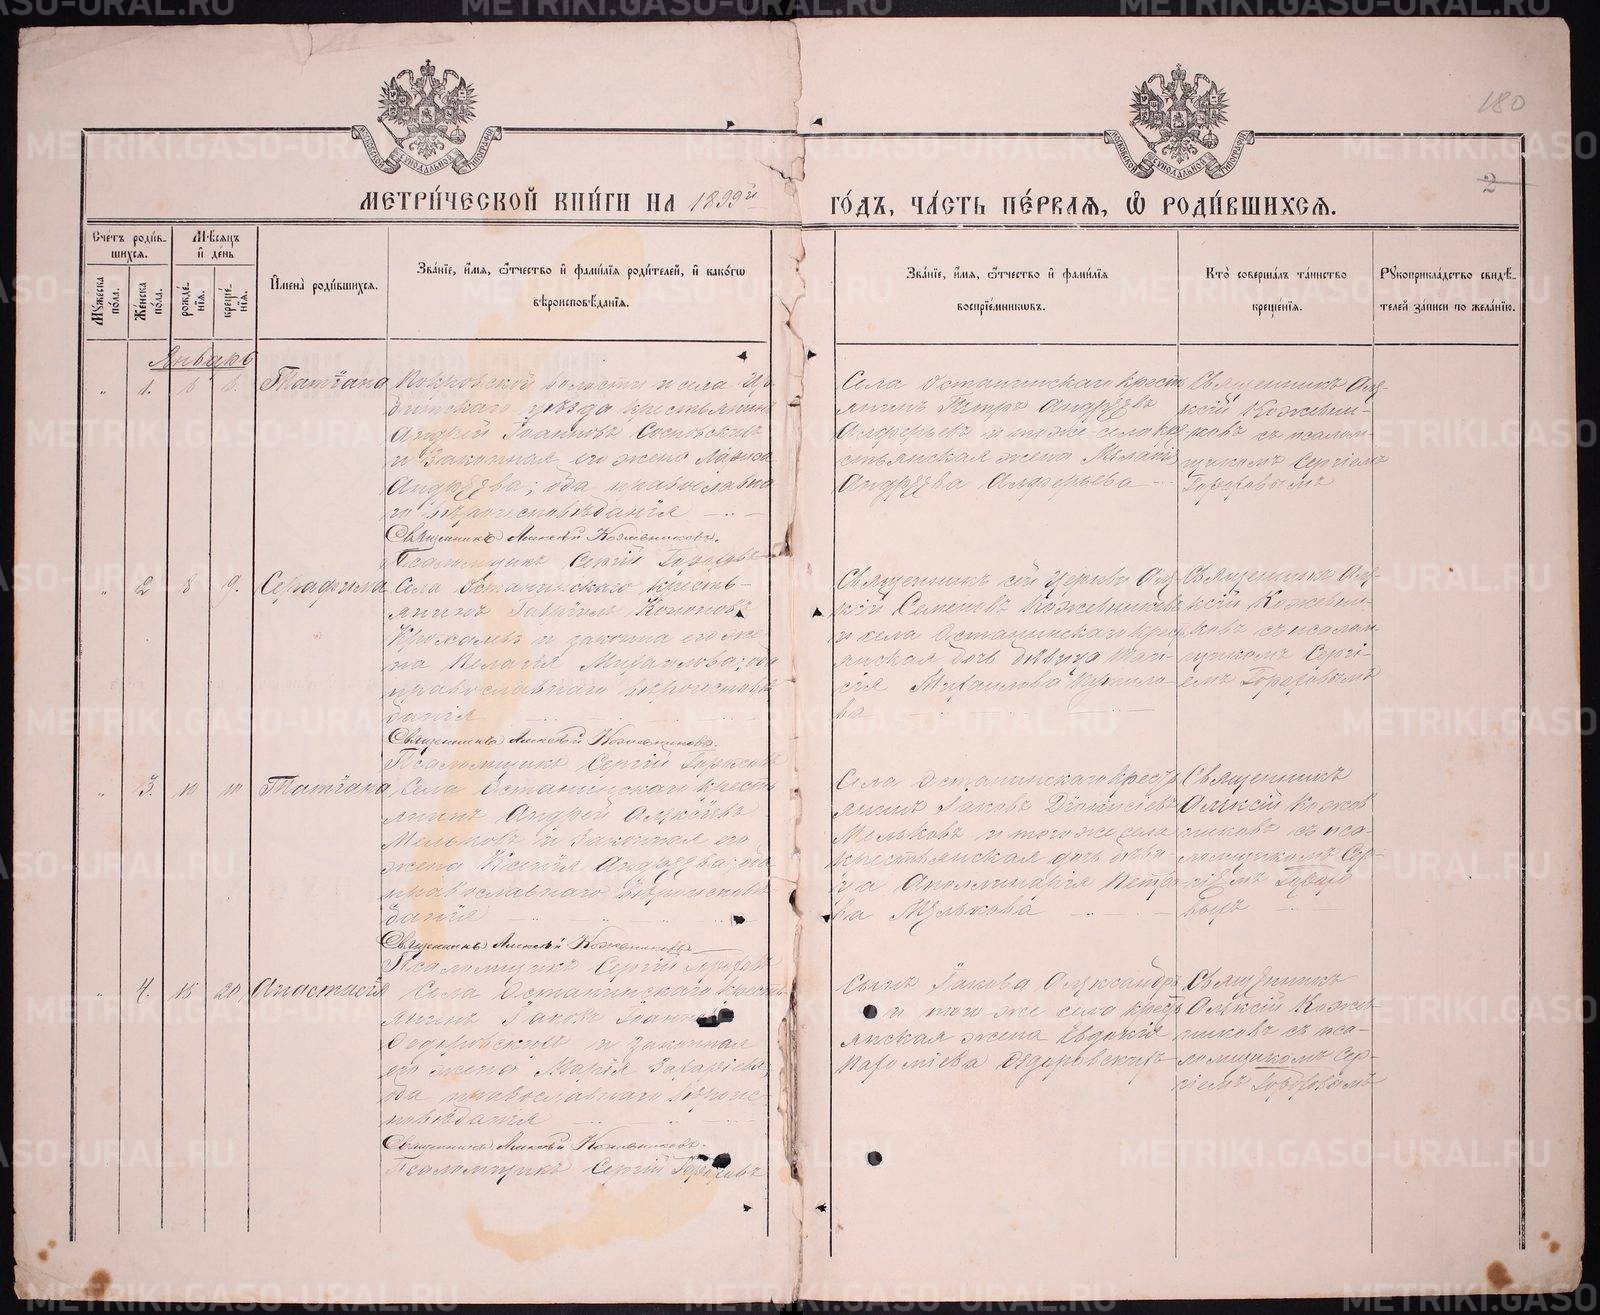 METRIKI.GASO-URAL.RU
180
2
МОСКОВСКОЙ СѴНОДАЛЬНОЙ ТИПОГРАФІИ
МОСКОВСКОЙ СѴНОДАЛЬНОЙ ТИПОГРАФІИ
МЕТРИ́ЧЕСКОЙ КНИ́ГИ НА 1899й ГО́ДЪ, ЧА́СТЬ ПЕ́РВАѦ, Ѡ РОДИ́ВШИХСѦ.
Сче́тъ роди́в-
шихсѧ.
Мꙋ́жеска по́ла.
Же́нска по́ла.
Мѣ́сѧцъ
и҆ де́нь
рожде́-
нїѧ.
креще́-
нїѧ.
И҆мена̀ роди́вшихсѧ.
Зва́нїе, и҆́мѧ, ѻ҆́тчество и҆ фами́лїѧ роди́телей, и҆ како́гѡ
вѣроисповѣ́данїѧ.
Зва́нїе, и҆́мѧ, ѻ҆́тчество и҆ фами́лїѧ
воспрїе́мникѡвъ.
Кто̀ соверша́лъ та́инство
креще́нїѧ.
Рꙋкоприкла́дство свидѣ́-
телей за́писи по жела́нїю.
Январь
„ 1. 6 6. Татіана
Покровской волости и села Ир-
битскаго уѣзда крестьянинъ
Андрей Іоанновъ Сосновскихъ
и законная его жена
Андреева; оба православна-
го вѣроисповѣданія
Священникъ Алексѣй Кожевниковъ.
Псаломщикъ Сергій
Села Останинскаго крест
янинъ Петръ Андреевъ
Алферьевъ и тоже села кре
стьянская жена
Андреева Алферьева
Священникъ Але-
ксій Кожевни-
ковъ съ псалом-
щикомъ Сергіемъ
„ 2 8 9. Серафима
Села Останинскаго кресть-
янинъ Гавріилъ Кононовъ
и законна его же
на Пелагія Михаилова; оба
православнаго вѣроисповѣ
данія
Священникъ Алексѣй Кожевниковъ.
Псаломщикъ Сергій
Священникъ сей церкви Але
ксій Семеновъ Кожевниковъ
и села Останинскаго крест
янская дочь дѣвица
Михаилова
ва
Священникъ Але-
ксій Кожевни-
ковъ съ псалом-
щикомъ Сергі-
емъ
„ 3. 10 10 Татіана
Села Останинскаго кресть
янинъ Андрей Алексѣевъ
Мельковъ и законная его
жена Ксенія Андреева; оба
православнаго вѣроисповѣ
данія
Священникъ Алексѣй Кожевниковъ
Псаломщикъ Сергій
Села Останинскаго крест
янинъ Іаковъ Діонисіевъ
Мельковъ и того же села
крестьянская дочь дѣви-
ца Аполлинарія Петро
ва Мелькова
Священникъ
Алексій Кожев
никовъ съ пса-
ломщикомъ Сер-
гіемъ
„ 4. 18 20 Анастасія
Села Останинскаго кресть
янинъ Іаковъ
Ѳедоровскихъ и законная
его жена Марія Захаріева,
оба православнаго вѣроис
повѣданія
Священникъ Алексѣй Кожевниковъ.
Псаломщикъ Сергій
Сынъ Іакова Александръ
и того же села крест
янская жена Евдокія
Ѳедоровскихъ
Священникъ
Алексій Кожев
никовъ съ пса-
ломщикомъ Сер-
гіемъ